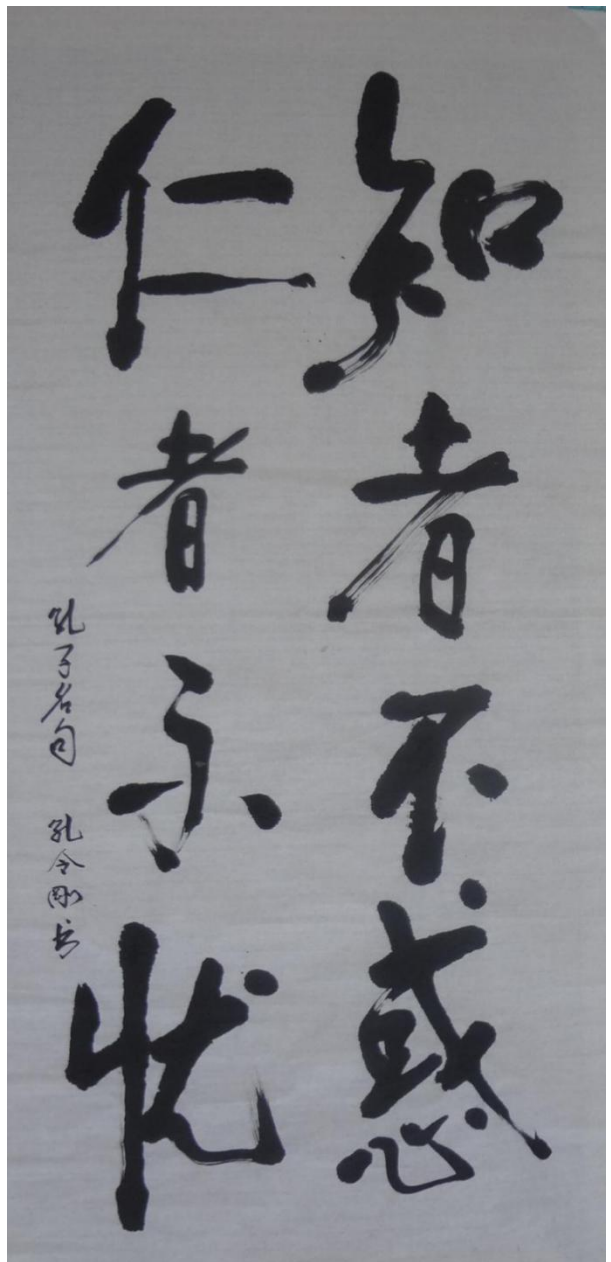 知者不惑
仁者不忧
孔子名句 孔令刚书